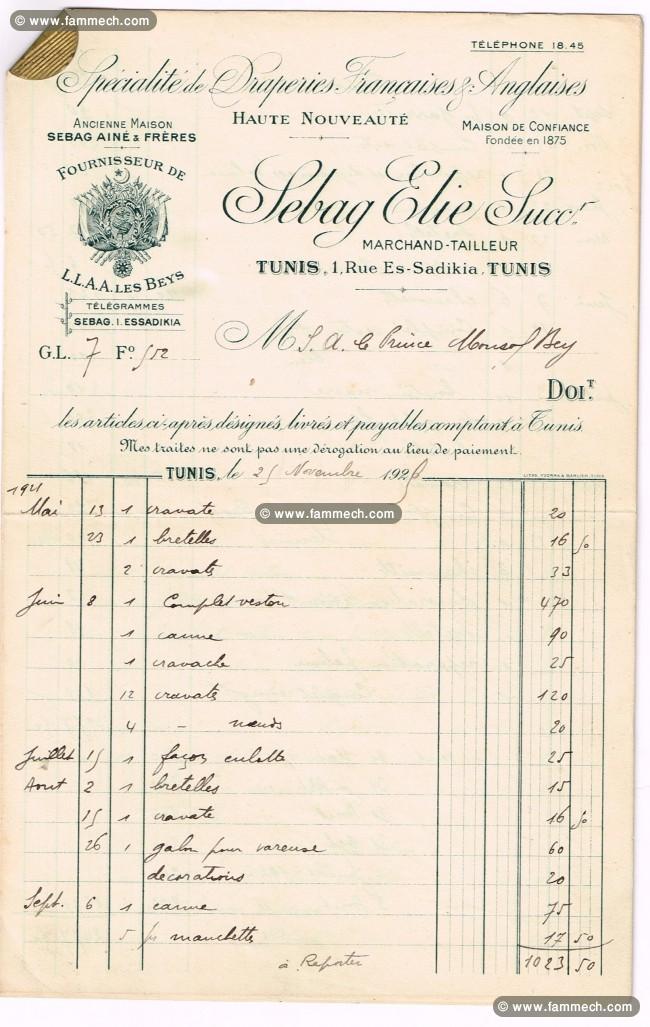 © www.fammech.com
© www.fammech.com
TÉLÉPHONE 18.45
Spécialité de Draperies Françaises & Anglaises
ANCIENNE MAISON
SEBAG AINÉ & FRÈRES
HAUTE NOUVEAUTÉ
MAISON DE CONFIANCE
Fondée en 1875
FOURNISSEUR DE
L.L.A.A. LES BEYS
Sebag Elie Succr.
MARCHAND-TAILLEUR
TUNIS, 1, Rue Es-Sadikia, TUNIS
TÉLÉGRAMMES
SEBAG. 1. ESSADIKIA
G.L. 7 Fo 502
M S. A. le Prince Monsof Bey
DOIT.
les articles ci-après désignés, livrés et payables comptant à Tunis
Mes traites ne sont pas une dérogation au lieu de paiement.
TUNIS, le 25 Novembre 192
1921
Mai 13 1 cravate 20
© www.fammech.com
23 1 bretelles 16 50
2 cravats 33
Juin 8 1 Complet veston 470
1 canne 90
1 cravache 25
12 cravats 120
4 - nœuds 20
Juillet 15 1 façon culotte 25
Aout 2 1 bretelles 15
15 1 cravate 16 50
26 1 galon pour vareuse 60
decorations 20
Sept. 6 1 canne 75
5 ps manchette 17 50
à Reporter 1023 50
© www.fammech.com